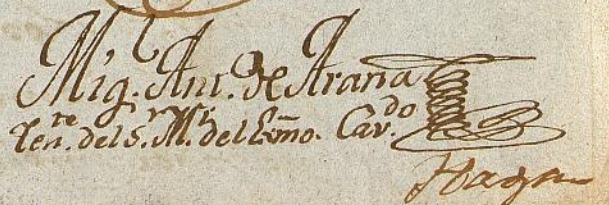 Mig.l Ant. de Arana
Ten.te del S. M. del Exmo. Cav.do